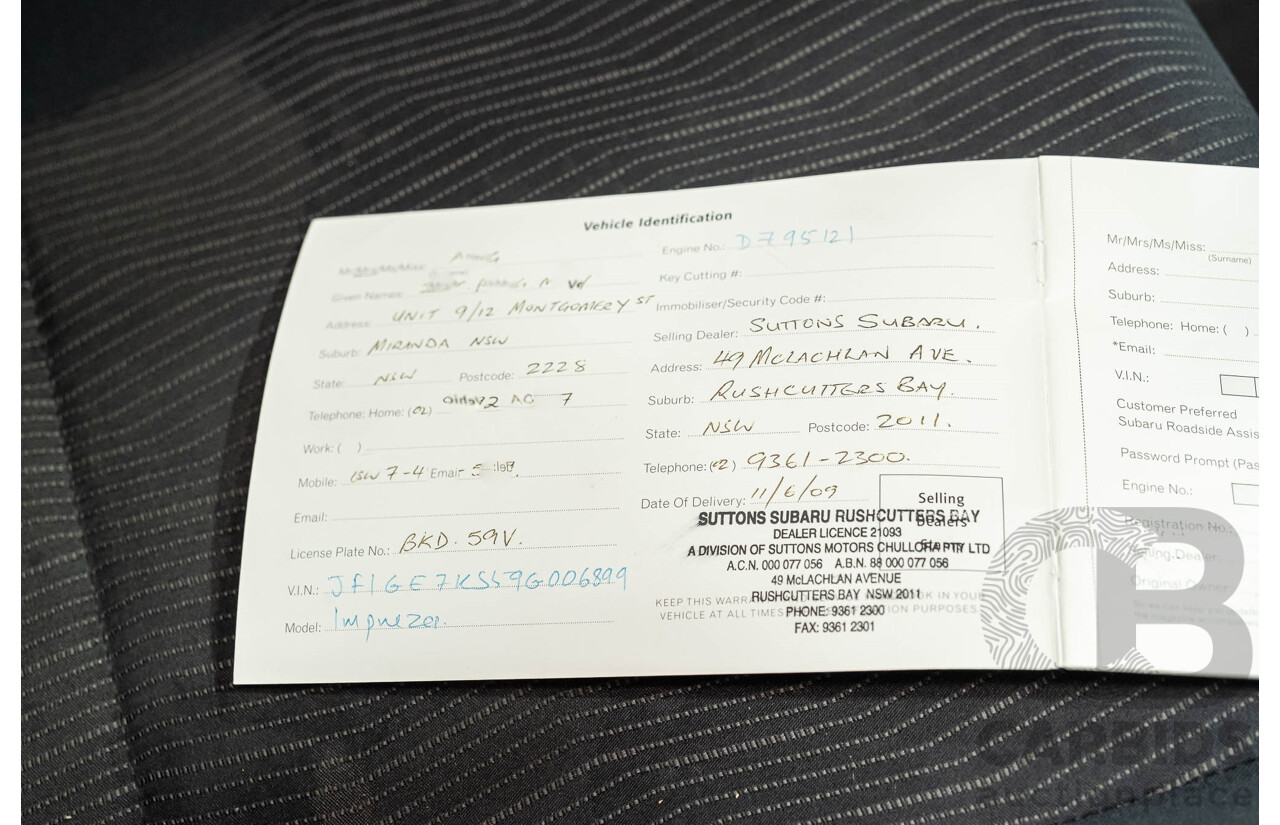 Vehicle Identification
Mr/Mrs/Ms/Miss:
Given Names:
Address: UNIT 9/12 MONTGOMERY ST
Suburb: MIRANDA NSW
State: NSW Postcode: 2228
Telephone: Home: (02)
Work: ( )
Mobile: Email:
Email:
License Plate No.: BKD. 59V.
V.I.N.: JF1GE7KS59G006899
Model: Impreza.
Engine No.: D795121
Key Cutting #:
Immobiliser/Security Code #:
Selling Dealer: SUTTONS SUBARU.
Address: 49 MCLACHLAN AVE.
Suburb: RUSHCUTTERS BAY.
State: NSW Postcode: 2011.
Telephone: (02) 9361-2300.
Date Of Delivery: 11/6/09
Selling
Dealers
SUTTONS SUBARU RUSHCUTTERS BAY
DEALER LICENCE 21093
A DIVISION OF SUTTONS MOTORS CHULLORA PTY LTD
A.C.N. 000 077 056 A.B.N. 88 000 077 056
49 McLACHLAN AVENUE
RUSHCUTTERS BAY NSW 2011
PHONE: 9361 2300
FAX: 9361 2301
KEEP THIS IN YOUR
VEHICLE AT ALL TIMES PURPOSES
Mr/Mrs/Ms/Miss:
(Surname)
Address:
Suburb:
Telephone: Home: ( )
*Email:
V.I.N.:
Customer Preferred
Subaru Roadside Assis
Password Prompt (Pas
Engine No.:
Registration No.:
Selling Dealer:
Original Owner
CB
CARBIDS